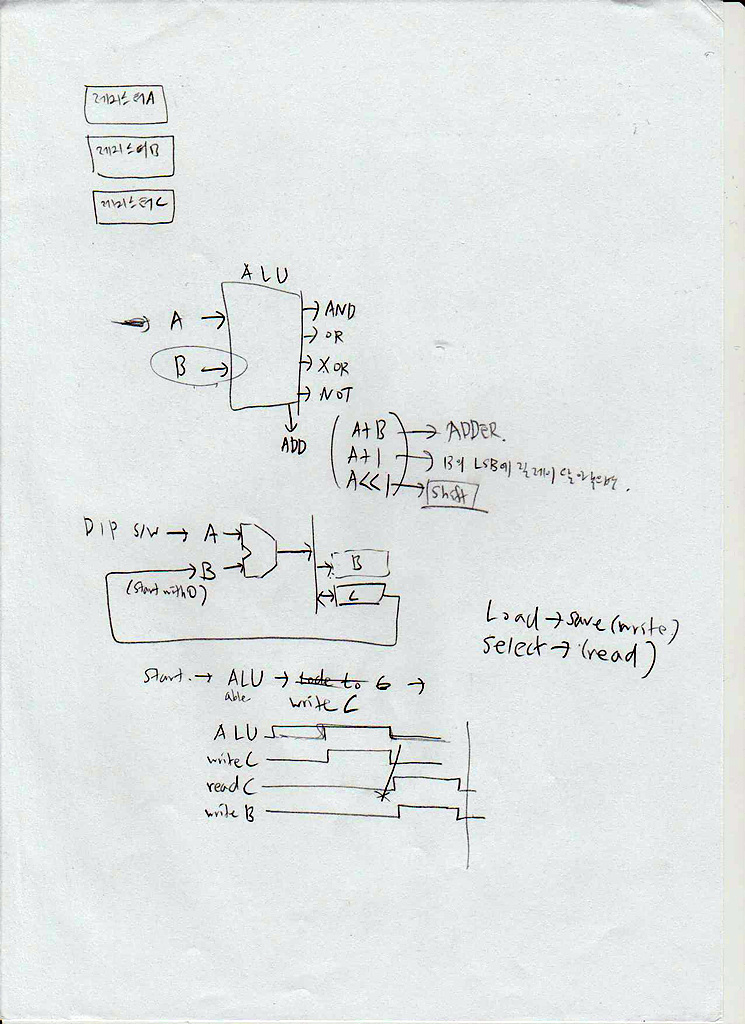 레지스터A
레지스터B
레지스터C
ALU
A
B
AND
OR
XOR
NOT
ADD
A+B → ADDER.
A+1 → B의 LSB에 릴레이
A<<1 → Shift
DIP S/W → A
B
(Start with 0)
B
C
Load → save (write)
Select → (read)
Start. → ALU → 6 →
able write C
ALU
write C
read C
write B